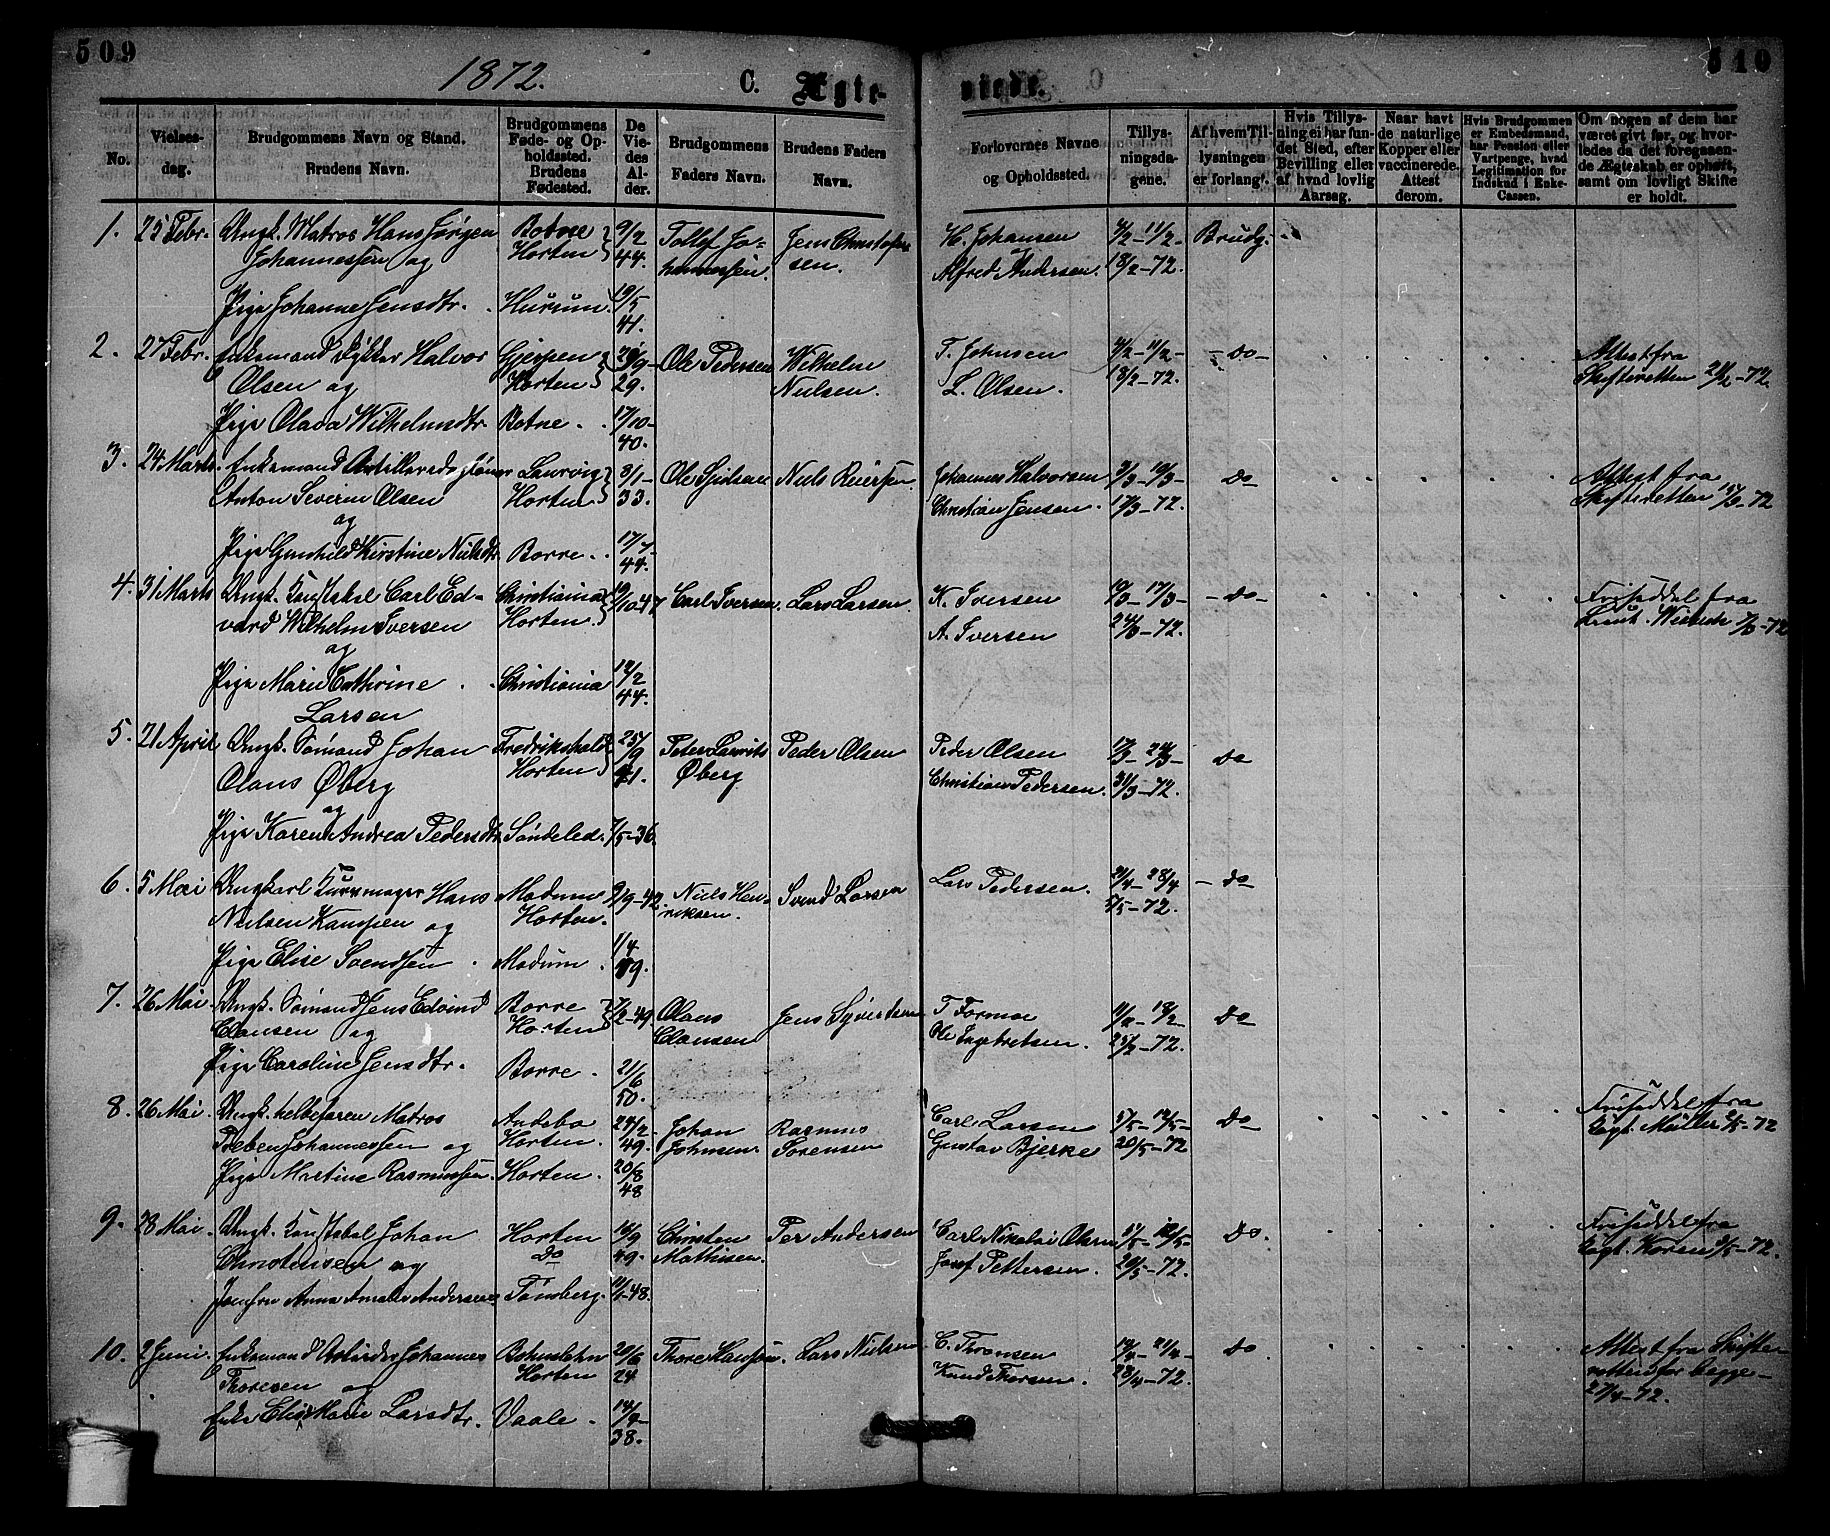 509
510
1872.
C. Ægte-
viede.
No.
Vielses-
dag.
Brudgommens Navn og Stand.
Brudens Navn.
Brudgommens
Føde- og Op-
holdssted.
Brudens
Fødested.
De
Vie-
des
Al-
der.
Brudgommens
Faders Navn.
Brudens Faders
Navn.
Forlovernes Navne
og Opholdssted.
Tillys-
ningsda-
gene.
Af hvem Til-
lysningen
er forlangt.
Hvis Tillys-
ning ei har fun-
det Sted, efter
Bevilling eller
af hvad lovlig
Aarsag.
Naar havt
de naturlige
Kopper eller
vaccinerede.
Attest
derom.
Hvis Brudgommen
er Embedsmand,
har Pension eller
Vartpenge, hvad
Legitimation for
Indskud i Enke-
Cassen.
Om nogen af dem har
været givt før, og hvor-
ledes da det foregaaen-
de Ægteskab er ophørt,
samt om lovligt Skifte
er holdt.
1. 25 Febr. Ungk. Matros Hans Jørgen Botne 9/2 Tollef Jo- Jens Christofer H. Johansen 4/2 - 11/2 - Brudg.
Johannessen og Horten 44. hannessen. sen. Alfred Andersen. 18/2 - 72.
Pige Johanne Jensdtr. Hurrum. 19/5
41.
2. 27 Febr. Enkemand Halvor Gjerpen 29/9 - Ole Pedersen Wilhelm T. Johnsen 4/2 - 11/2 - - do - Attest fra
Olsen og Horten 29. Nielsen. L. Olsen. 18/2 - 72. Skifteretten 21/2 - 72.
Pige Olava Wilhelmsdtr. Botne. 17/10 -
40.
3. 24 Marts. Enkemand Laurvig 3/1 - Ole Niels Reiersen. Johannes Halvorsen 3/3 - 10/3 - do Attest fra
Anton Severin Olsen Horten 33. Christian Jensen. 17/3 - 72. Skifteretten 15/3 - 72
og
Pige Gunhild Kirstine Nielsdtr. Borre. 17/7 -
44.
4. 31 Marts Ungk. Konstabel Carl Ed- Christiania 19/10 - 47 Carl Iversen. Lars Larsen. K. Iversen 10/3 - 17/3 - - do - Friseddel fra
vard Wilhelm Iversen Horten. A. Iversen 24/3 - 72. 7/3 - 72
og
Pige Marie Cathrine Christiania 14/2
Larsen 44.
5. 21 April Ungk. Sømand Johan Fredrikshald 25/9 Peter Laurits Peder Olsen Peder Olsen 17/3 - 24/3 - do
Olaus Øberg Horten 41. Øberg Christian Pedersen. 31/3 - 72.
og
Pige Karen Andrea Pedersdtr. Søndeled. 7/5 - 36.
6. 5 Mai Ungkarl Kurvmager Hans Modum 9/9 - 42. Niels Hen- Svend Larsen Lars Pedersen. 21/4 - 28/4 - do
Nielsen og Horten. riksen. 5/5 - 72.
Pige Elise Svendsen. Modum. 1/4
49.
7. 26 Mai. Ungk. Sømand Jens Edvind Borre 7/2 - 49. Olaus Jens Syvertsen T. Formoe 11/2 - 18/2 - do
Clausen og Horten Clausen Ole Ingebretsen. 25/2 - 72.
Pige Caroline Jensdtr. Borre. 21/6
50.
8. 26 Mai. Ungk. helbefaren Matros Andebo 24/2 - Johan Rasmus Carl Larsen 5/5 - 12/5 - do Friseddel fra
Preben Johannessen og Horten. 49. Johnsen Sørensen Gustav Bjerke 20/5 - 72 Capt. Müller 2/5 - 72
Pige Martine Rasmussen. Horten. 20/8
48
9. 28 Mai. Ungk. Konstabel Johan Horten 19/9 Christen Per Andersen Carl Nikolai 5/5 - 12/5 - do. Friseddel fra
Christensen og do 49. Mathisen. Josef Pettersen. 20/5 - 72. Capt. Korsen 3/5 - 72.
Jomfru Anna Amalie Andersen Tønsberg. 11/1 - 48.
10. 2 Juni. Enkemand Johannes Bohuslehn 20/6 Thore Hansen. Lars Nielsen C. Thronsen 14/4 - 21/4 - do. Attest fra Skifte-
Thoresen og Horten 24 Knud Thorsen. 28/4 - 72. retten for begge -
Enke Elise Marie Larsdtr. Vaale. 14/9 - 27/4 - 72.
38.